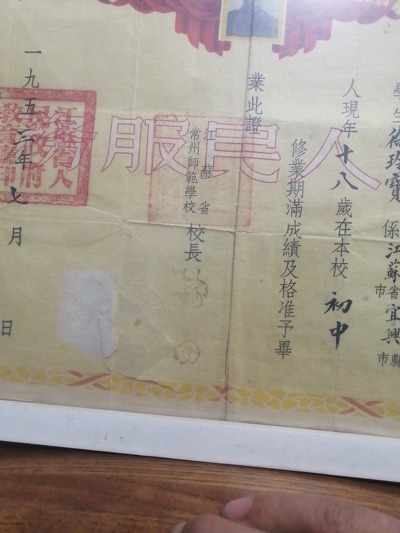 學生徐玲寶係江蘇省市宜興縣市
人現年十八歲在本校初中
修業期滿成績及格准予畢
業此證
江蘇省
常州師範學校校長
一九五三年七月
日
為人民服